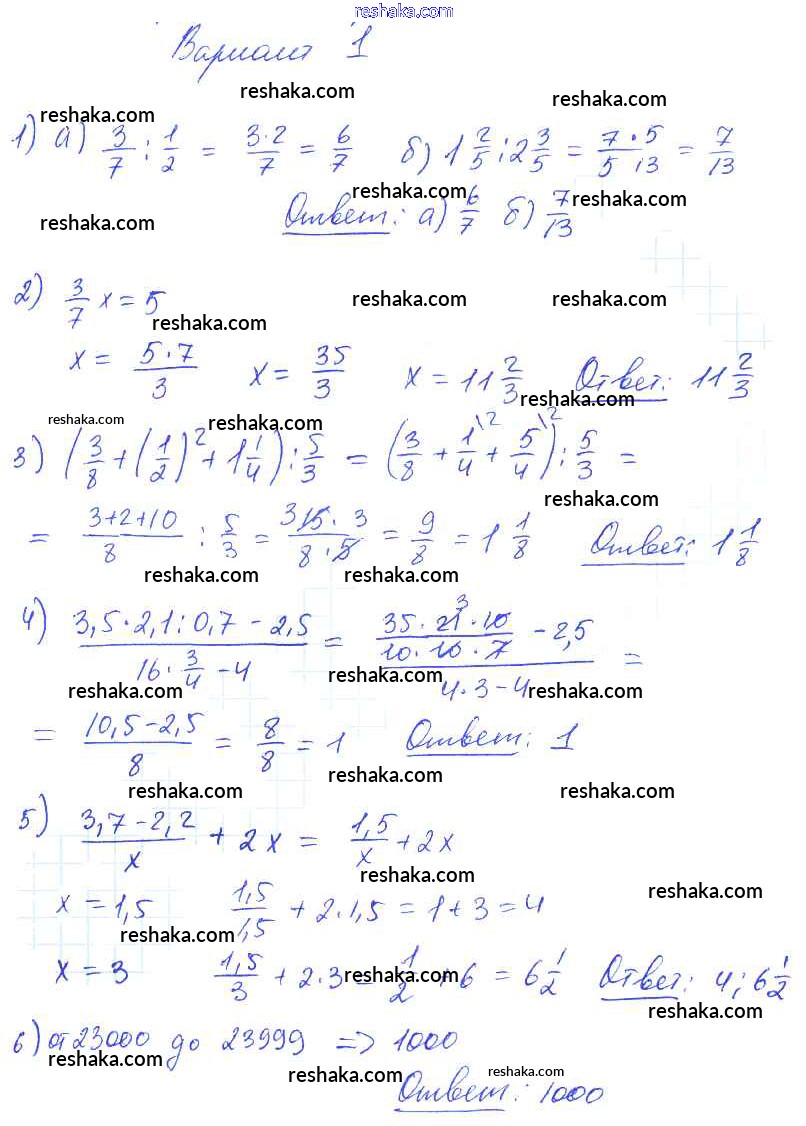 reshaka.com
Вариант 1
reshaka.com reshaka.com
reshaka.com
1) а) 3/7 : 1/2 = 3·2/7 = 6/7 б) 1 2/5 : 2 3/5 = 7·5/5·13 = 7/13
reshaka.com reshaka.com
reshaka.com
Ответ: а) 6/7 б) 7/13
2) 3/7 x = 5
reshaka.com reshaka.com
reshaka.com
x = 5·7/3 x = 35/3 x = 11 2/3 Ответ: 11 2/3
reshaka.com
reshaka.com reshaka.com
3) (3/8 + (1/2)² + 1 1/4) : 5/3 = (3/8 + 1/4 \2 + 5/4 \2) : 5/3 =
reshaka.com
= 3+2+10/8 : 5/3 = 3 15·3/8·5 = 9/8 = 1 1/8 Ответ: 1 1/8
reshaka.com reshaka.com
4) 3,5·2,1:0,7 − 2,5 / 16·3/4 − 4 = 35·21 3·10/10·10·7 − 2,5 / 4·3−4 =
reshaka.com reshaka.com reshaka.com
= 10,5−2,5/8 = 8/8 = 1 Ответ: 1
reshaka.com
reshaka.com reshaka.com
5) 3,7−2,2/x + 2x = 1,5/x + 2x
reshaka.com
reshaka.com
x = 1,5 1,5/1,5 + 2·1,5 = 1+3 = 4
reshaka.com
x = 3 1,5/3 + 2·3 = 1/2 + 6 = 6 1/2 Ответ: 4; 6 1/2
reshaka.com
reshaka.com
6) от 23000 до 23999 => 1000
reshaka.com
reshaka.com reshaka.com
Ответ: 1000